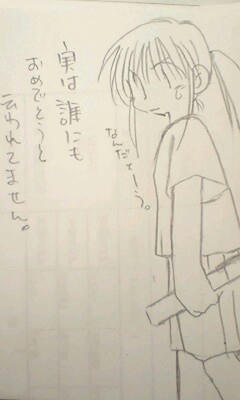 実は誰にも
おめでとうと
云われてません。
なんだょーう。